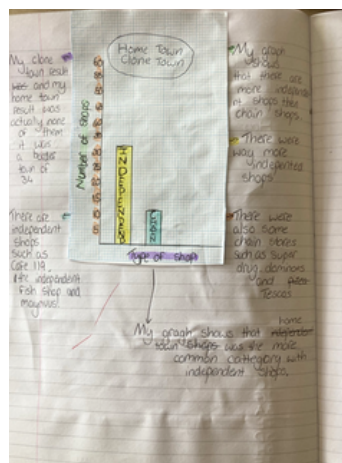 Home Town
Clone Town
Number of shops
INDEPENDENT
CHAIN
Type of shop
My clone
town result
was and my
home town
result was
actually none
of them
it was
a border
town of
34
There are
independent
shops
such as
Cafe 119,
the independent
fish shop and
My graph
shows
that there are
more independe
nt shops then
chain shops.
There were
way more
independent
shops
There were
also some
chain stores
such as super
drug, dominos
and
Tescos
My graph shows that home
town shops was the more
common cattegory with
independent shops.